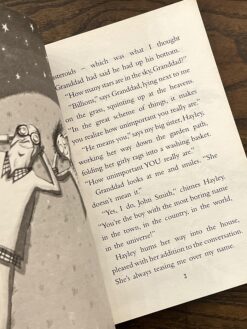 asteroids – which was what I thought
Granddad had said he had up his bottom.
"How many stars are in the sky, Granddad?"
"Billions," says Granddad, lying next to me
on the grass, squinting up at the heavens.
"In the great scheme of things, it makes
you realize how unimportant you really are."
"He means you," says my big sister, Hayley,
working her way down the garden path,
folding her girly rags into a washing basket.
"How unimportant YOU really are."
Granddad looks at me and smiles. "She
doesn't mean it."
"Yes, I do, John Smith," chimes Hayley.
"You're the boy with the most boring name
in the town, in the country, in the world,
in the universe!"
Hayley hums her way into the house,
pleased with her addition to the conversation.
She's always teasing me over my name.